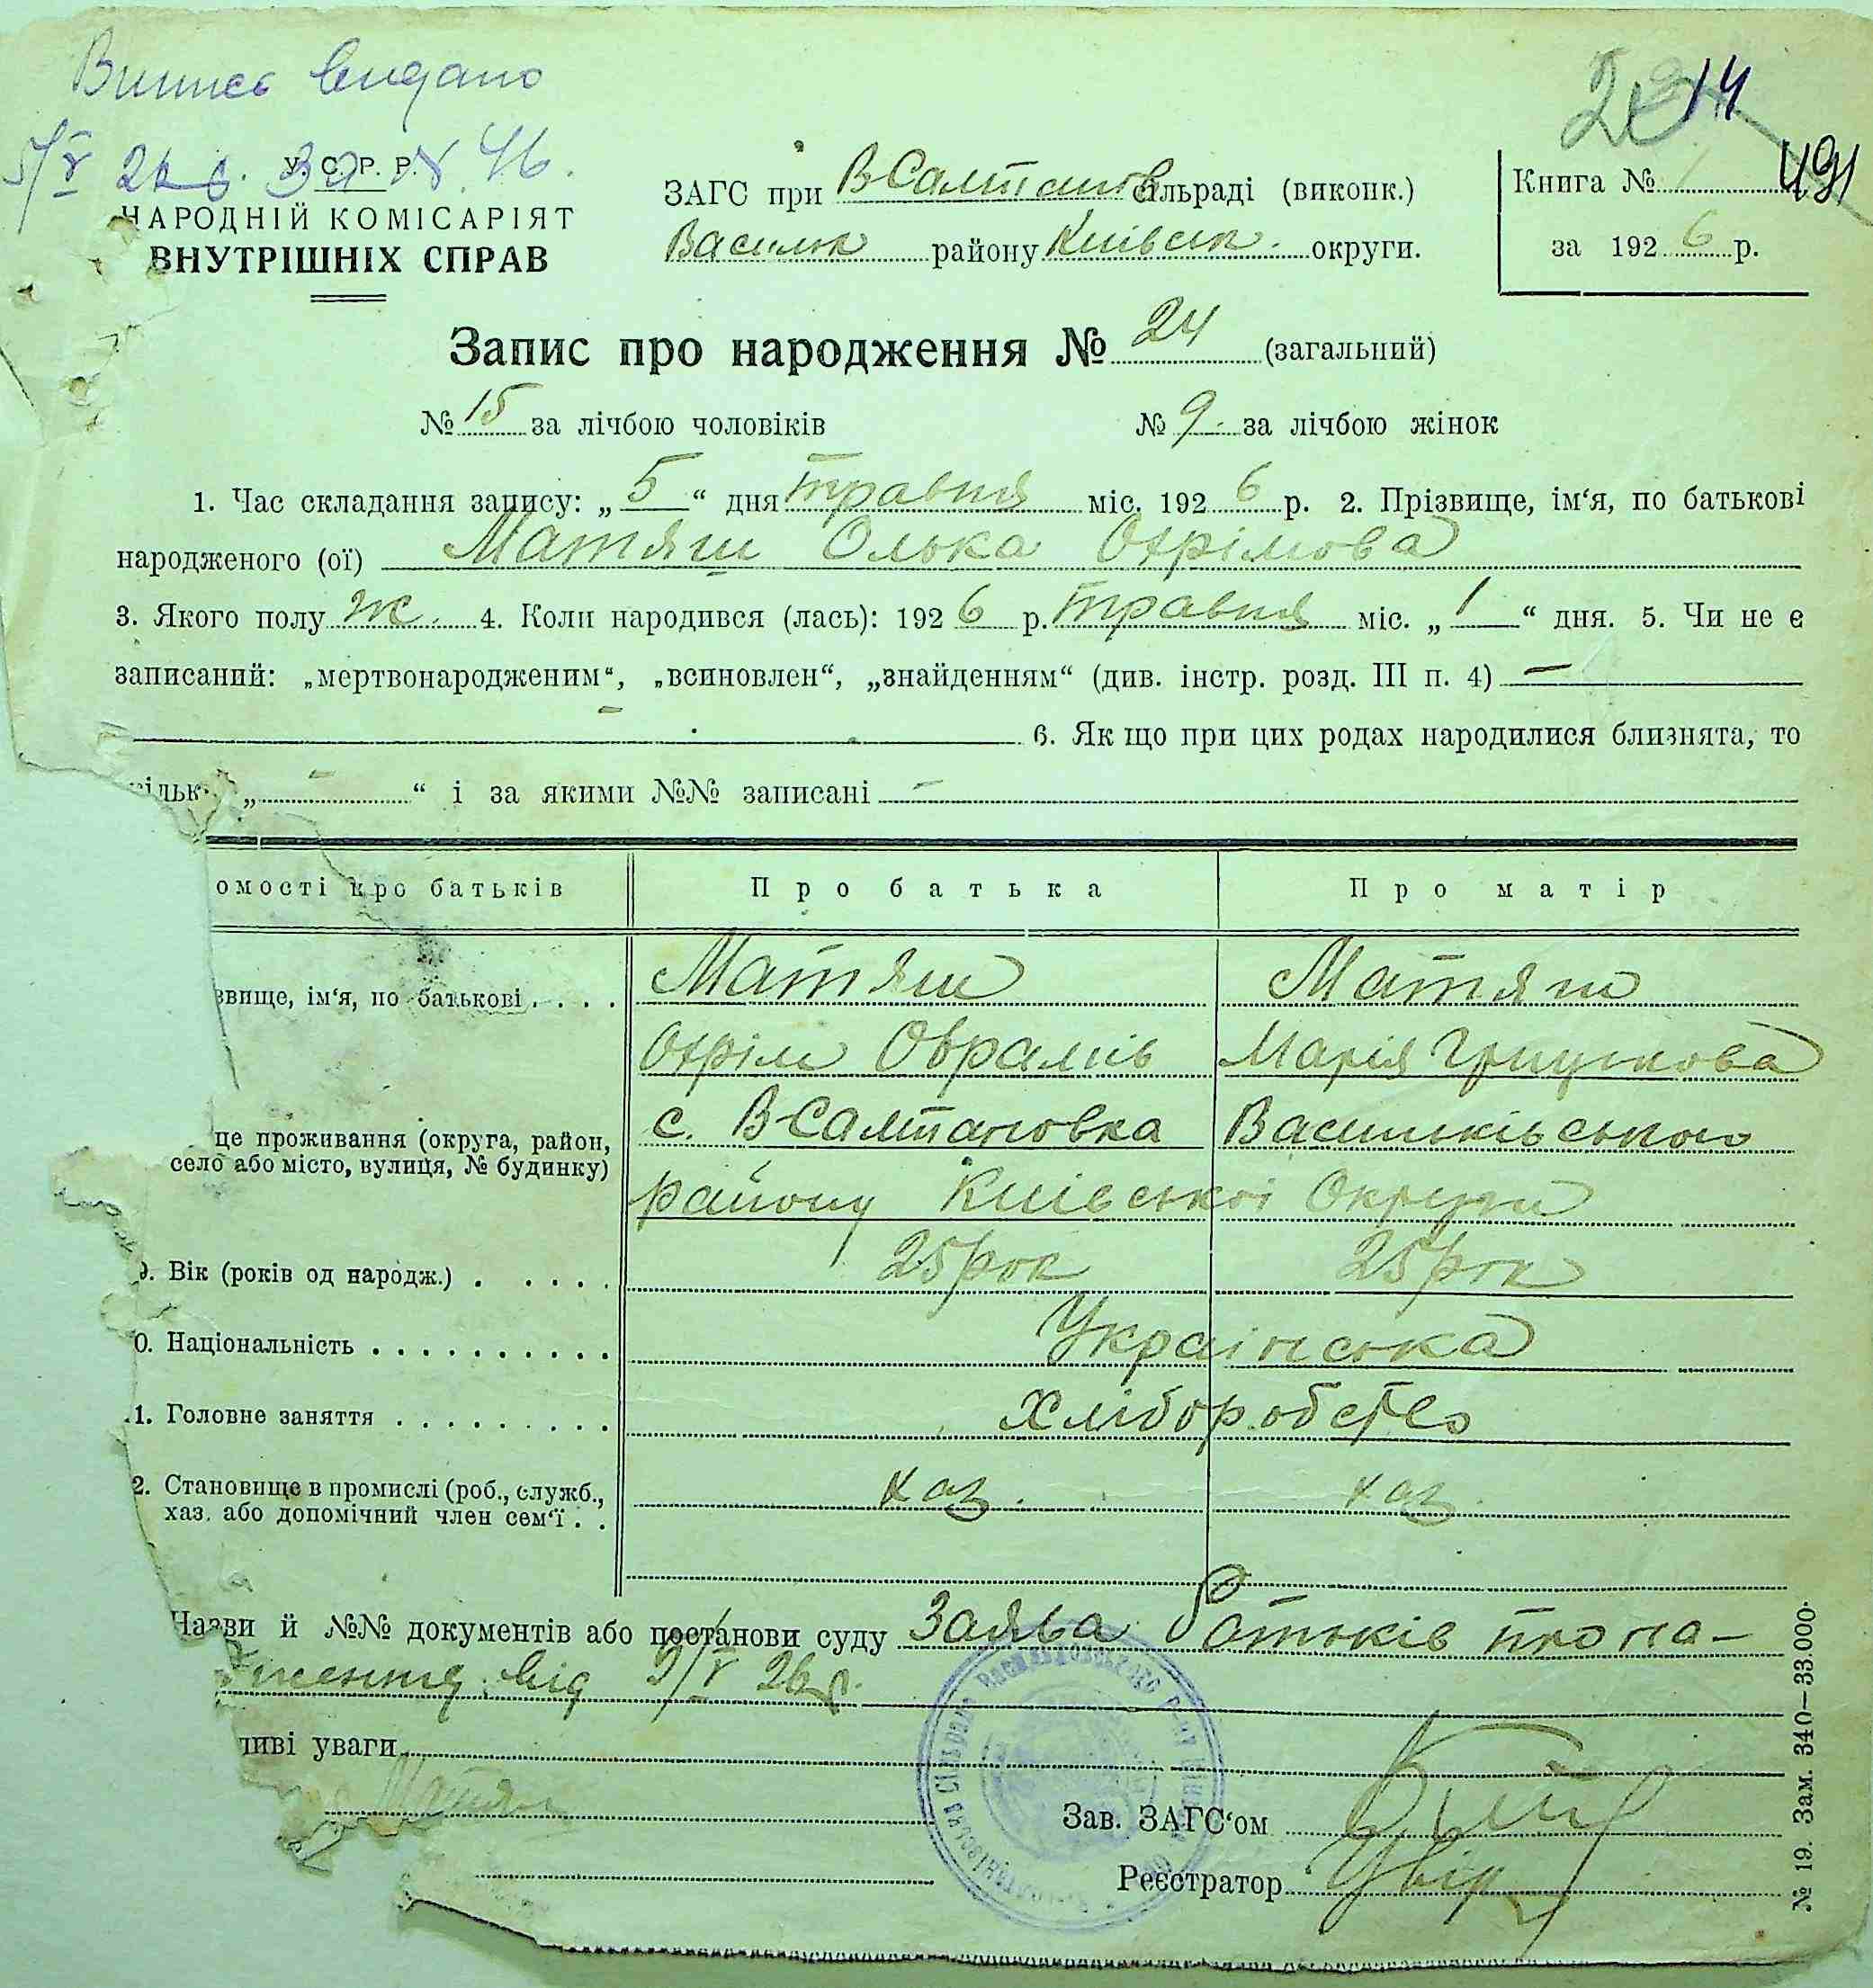 Випись видано
5/V 26 р. За № 46.
У. С. Р. Р.
НАРОДНІЙ КОМІСАРІЯТ
ВНУТРІШНІХ СПРАВ
ЗАГС при В-Салтанов сільраді (виконк.)
Васильк району Київськ. округи.
14
Книга № 491
за 1926 р.
Запис про народження № 24 (загальний)
№ 15 за лічбою чоловіків № 9. за лічбою жінок
1. Час складання запису: „5“ дня травня міс. 1926 р. 2. Прізвище, ім‘я, по батькові
народженого (ої) Матяш Олька Охрімова
3. Якого полу ж. 4. Коли народився (лась): 1926 р. травня міс. „1“ дня. 5. Чи не є
записаний: „мертвонародженим“, „всиновлен“, „знайденням“ (див. інстр. розд. III п. 4) —
6. Як що при цих родах народилися близнята, то
ільк „ – “ і за якими №№ записані –
омості про батьків Про батька Про матір
звище, ім‘я, по батькові . . . . Матяш Матяш
Охрім Оврамів Марія Грицькова
це проживання (округа, район, с. В-Салтановка Васильківського
село або місто, вулиця, № будинку)
району Київської Округи
9. Вік (років од народж.) . . . . . 25 рок 25 рок
0. Національність . . . . . . . . . . Українська
1. Головне заняття . . . . . . . . . Хліборобство
2. Становище в промислі (роб., служб., хаз. хаз.
хаз. або допомічний член сем‘ї . .
Назви й №№ документів або постанови суду Заява батьків про на-
ження від 5/V 26 р.
ливі уваги
Матяш
Зав. ЗАГС‘ом
Реєстратор
№ 19. Зам. 340—33.000.